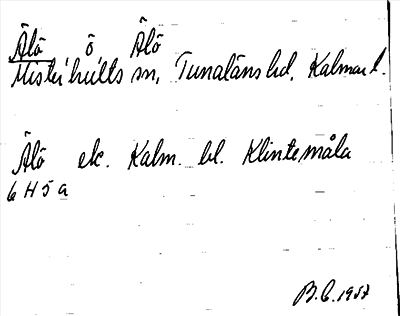 Älö, ö, Älö
Misterhults sn, Tunaläns hd, Kalmar l.
Älö ek. Kalm. bl. Klintemåla
6 H 5 a
B.C. 1957